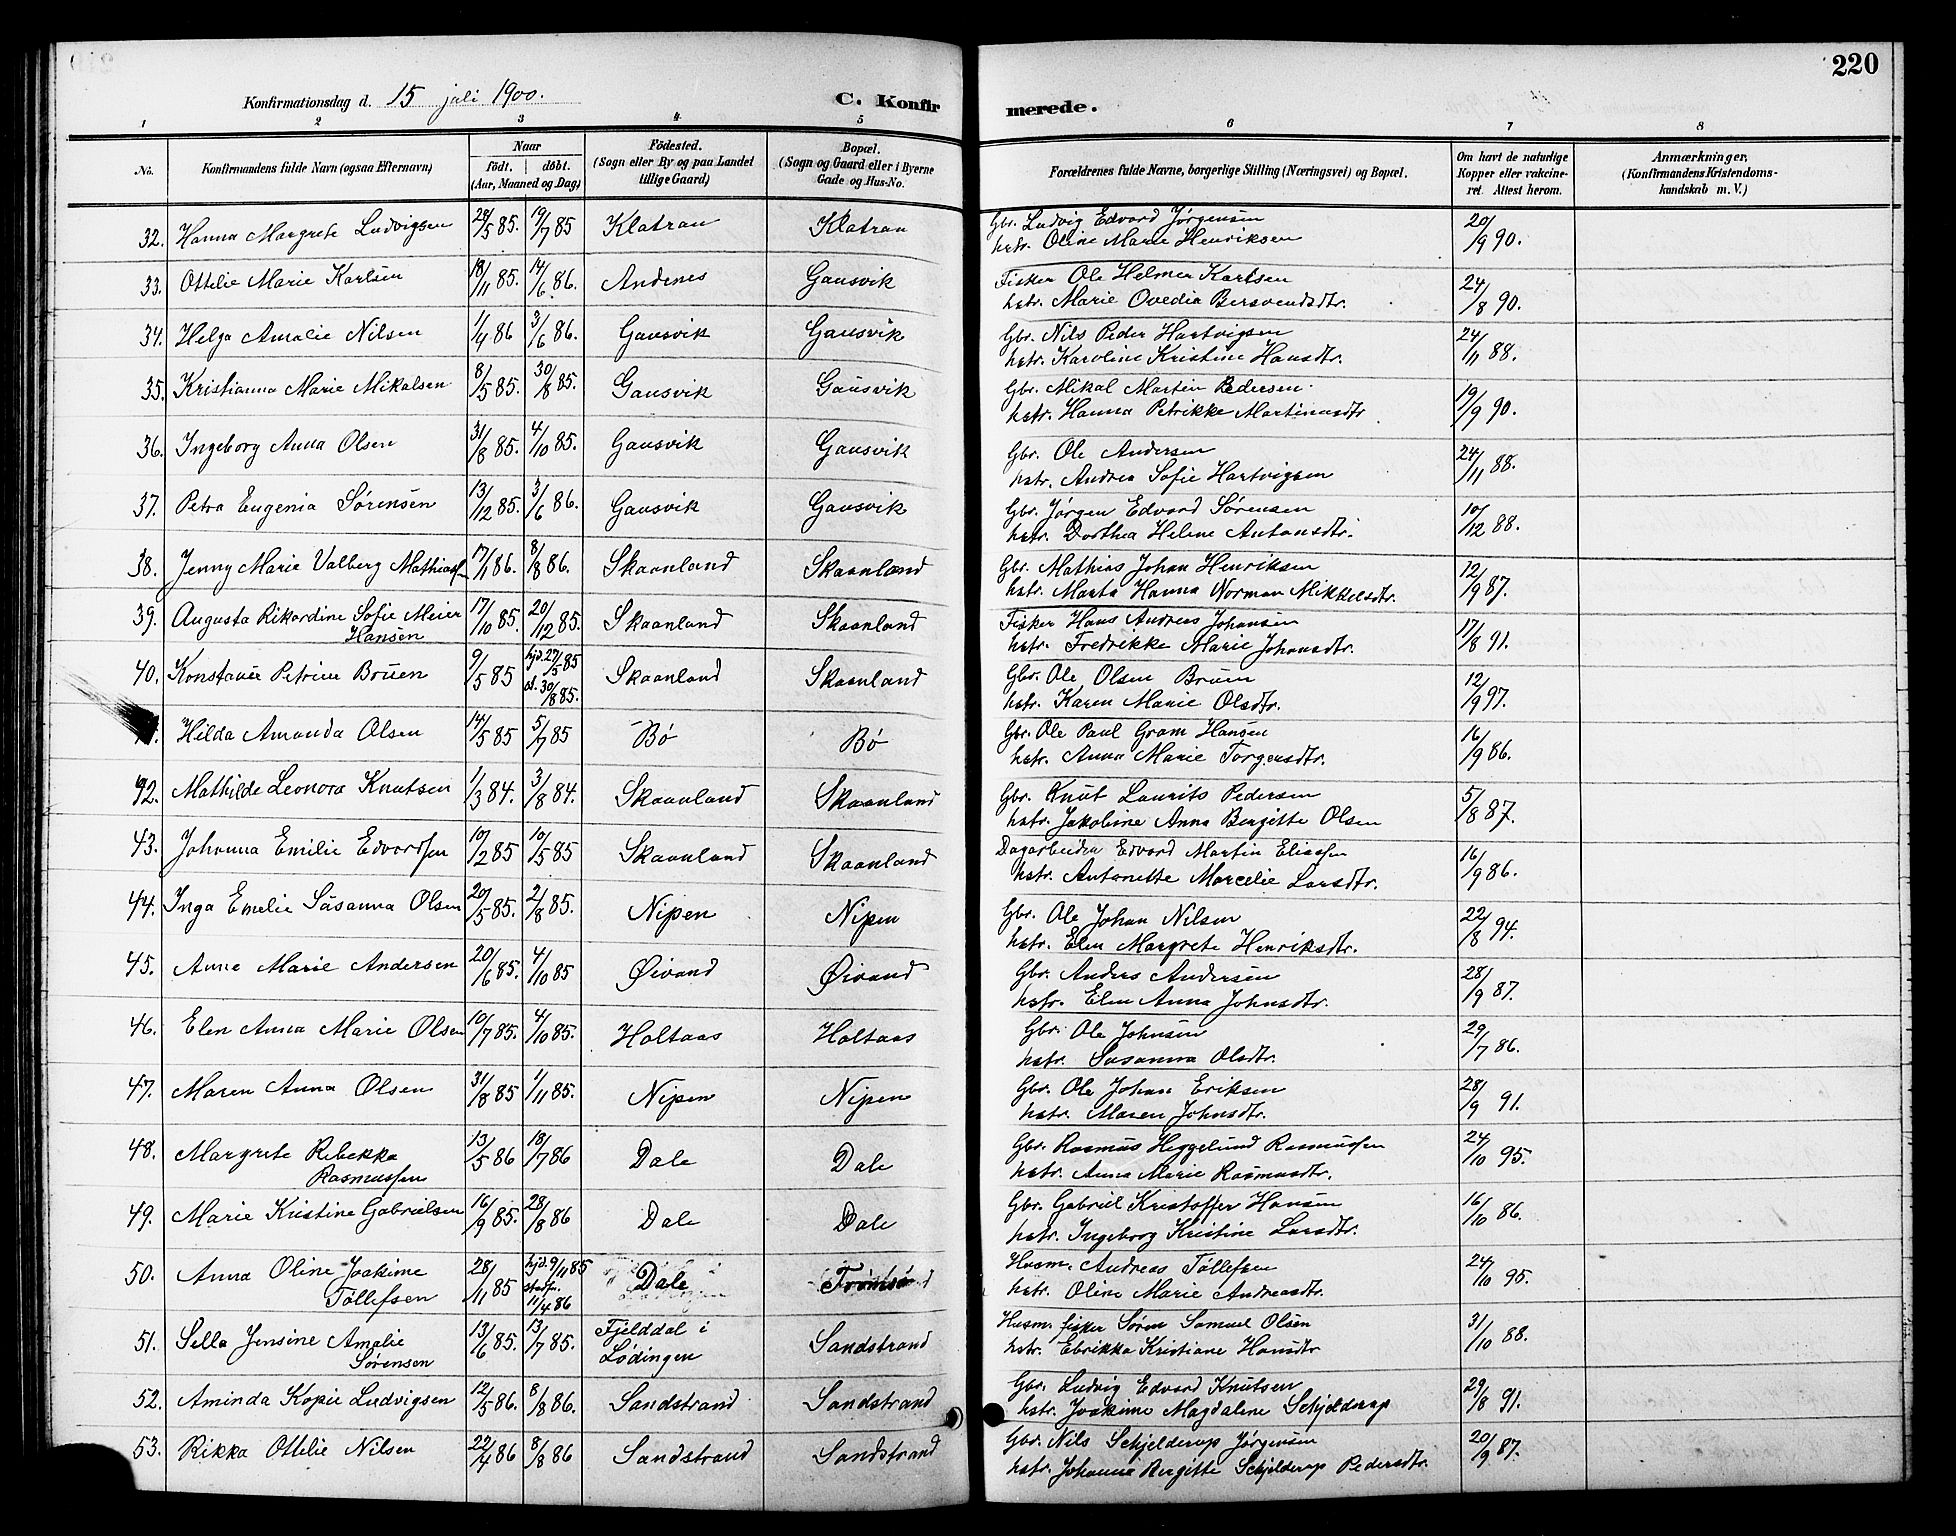 220
Konfirmationsdag d. 15 juli 1900.
C. Konfirmerede.
1 2 3 4 5 6 7 8
No. Konfirmandens fulde Navn (ogsaa Efternavn) Naar født. døbt. (Aar, Maaned og Dag) Födested. (Sogn eller By og paa Landet tillige Gaard) Bopæl. (Sogn og Gaard eller i Byerne Gade og Hus-No. Forældrenes fulde Navne, borgerlige Stilling (Næringsvei) og Bopæl. Om havt de naturlige Kopper eller vakcineret. Attest herom. Anmærkninger, (Konfirmandens Kristendomskundskab m. V.)
32. Hanna Margrete Ludvigsen 28/5 85. 19/7 85 Klatran Klatran Gbr. Ludvig Edvard Jørgensen 20/9 90.
hstr. Oline Marie Henriksen
33. Ottelie Marie Karlsen 18/11 85. 14/6 86. Andenes Gausvik Fisker Ole Helmer Karlsen 24/8 90.
hstr. Marie Ovedia Bersvendsdtr.
34. Helga Amalie Nilsen 1/4 86 3/6 86. Gausvik Gausvik Gbr. Nils Peder Hartvigsen 24/11 88.
hstr. Karoline Kristine Hansdtr.
35. Kristianna Marie Mikalsen 8/5 85. 30/8 85. Gausvik Gausvik Gbr. Mikal Martin Pedersen 19/9 90.
hstr. Hanna Petrikke Martinusdtr
36. Ingeborg Anna Olsen 31/8 85. 4/10 85. Gausvik Gausvik Gbr. Ole Andersen 24/11 88.
hstr. Andrea Sofie Hartvigsen
37. Petra Eugenia Sørensen 13/12 85. 3/6 86. Gausvik Gausvik Gbr. Jørgen Edvard Sørensen 10/12 88.
hstr. Dorthea Helene Antonsdtr.
38. Jenny Marie Valberg Mathiass 17/1 86. 8/8 86. Skaanland Skaanland Gbr. Mathias Johan Henriksen 12/9 87.
hstr. Marta Hanna Norman Mikkelsdtr.
39. Augusta Rikardine Sofie Meier 17/10 85. 20/12 85. Skaanland Skaanland Fisker Hans Andreas Johansen 17/8 91.
Hansen hstr. Fredrikke Marie Johansdtr.
40. Konstanse Petrine Bruen 9/5 85 hjd. 27/5 85 st. 30/8 85. Skaanland Skaanland Gbr. Ole Olsen Bruun 12/9 97.
hstr. Karen Marie Olsdtr.
Hilda Amanda Olsen 14/5 85 5/7 85 Bø Bø Gbr. Ole Paul Gram Hansen 16/9 86.
hstr. Anna Marie Torgersdtr.
42. Mathilde Leonora Knutsen 1/3 84. 3/8 84. Skaanland Skaanland Gbr. Knut Laurits Pedersen 5/8 87.
hstr. Jakobine Anna Bergitte Olsen
43. Johanna Emilie Edvardsen 10/2 85 10/5 85 Skaanland Skaanland Dagarbeider Edvard Martin Eliassen 16/9 86.
hstr. Antonette Marcelie Larsdtr.
44. Inga Emelie Susanna Olsen 20/5 85. 2/8 85. Nipen Nipen Gbr. Ole Johan Nilsen 22/8 94.
hstr. Elen Margrete Henriksdtr.
45. Anne Marie Andersen 20/6 85. 4/10 85 Øivand Øivand Gbr. Anders Andersen 28/9 87.
hstr. Elen Anna Johnsdtr.
46. Elen Anna Marie Olsen 10/7 85. 4/10 85. Holtaas Holtaas Gbr. Ole Johnsen 29/7 86.
hstr. Susanna Olsdtr.
47. Maren Anna Olsen 31/8 85 1/11 85. Nipen Nipen Gbr. Ole Johan Eriksen 28/9 91.
hstr. Maren Johnsdtr.
48. Margrete Rebekka 13/5 86 18/7 86 Dale Dale Gbr. Rasmus Heggelund Rasmussen 24/10 95.
Rasmussen hstr. Anna Marie Rasmusdtr.
49. Marie Kristine Gabrielsen 16/9 85. 28/8 86 Dale Dale Gbr. Gabriel Kristoffer Hansen 16/10 86.
hstr. Ingeborg Kristine Larsdtr.
50. Anna Oline Joakime 28/11 85 hjd. 9/11 85 stadf. 11/4 86 Dale Tromsø Husm. Andreas Tøllefsen 24/10 95.
Tøllefsen hstr. Oline Marie Andreasdtr.
51. Sella Jensine Amalie 13/6 85. 13/7 85. Fjelddal i Sandstrand Husm. fisker Søren Samuel Olsen 31/10 88.
Sørensen Lødingen hstr. Ebrikka Kristiane Hansdtr
52. Aminda Kopie Ludvigsen 12/5 86. 8/8 86. Sandstrand Sandstrand Gbr. Ludvig Edvard Knutsen 29/8 91.
hstr. Joakime Magdalene Schjelderup
53. Rikka Ottelie Nilsen 22/4 86 8/8 86 Sandstrand Sandstrand Gbr. Nils Schjelderup Jørgensen 20/9 87.
hstr. Johanna Bergitte Schjelderup Pedersdtr.